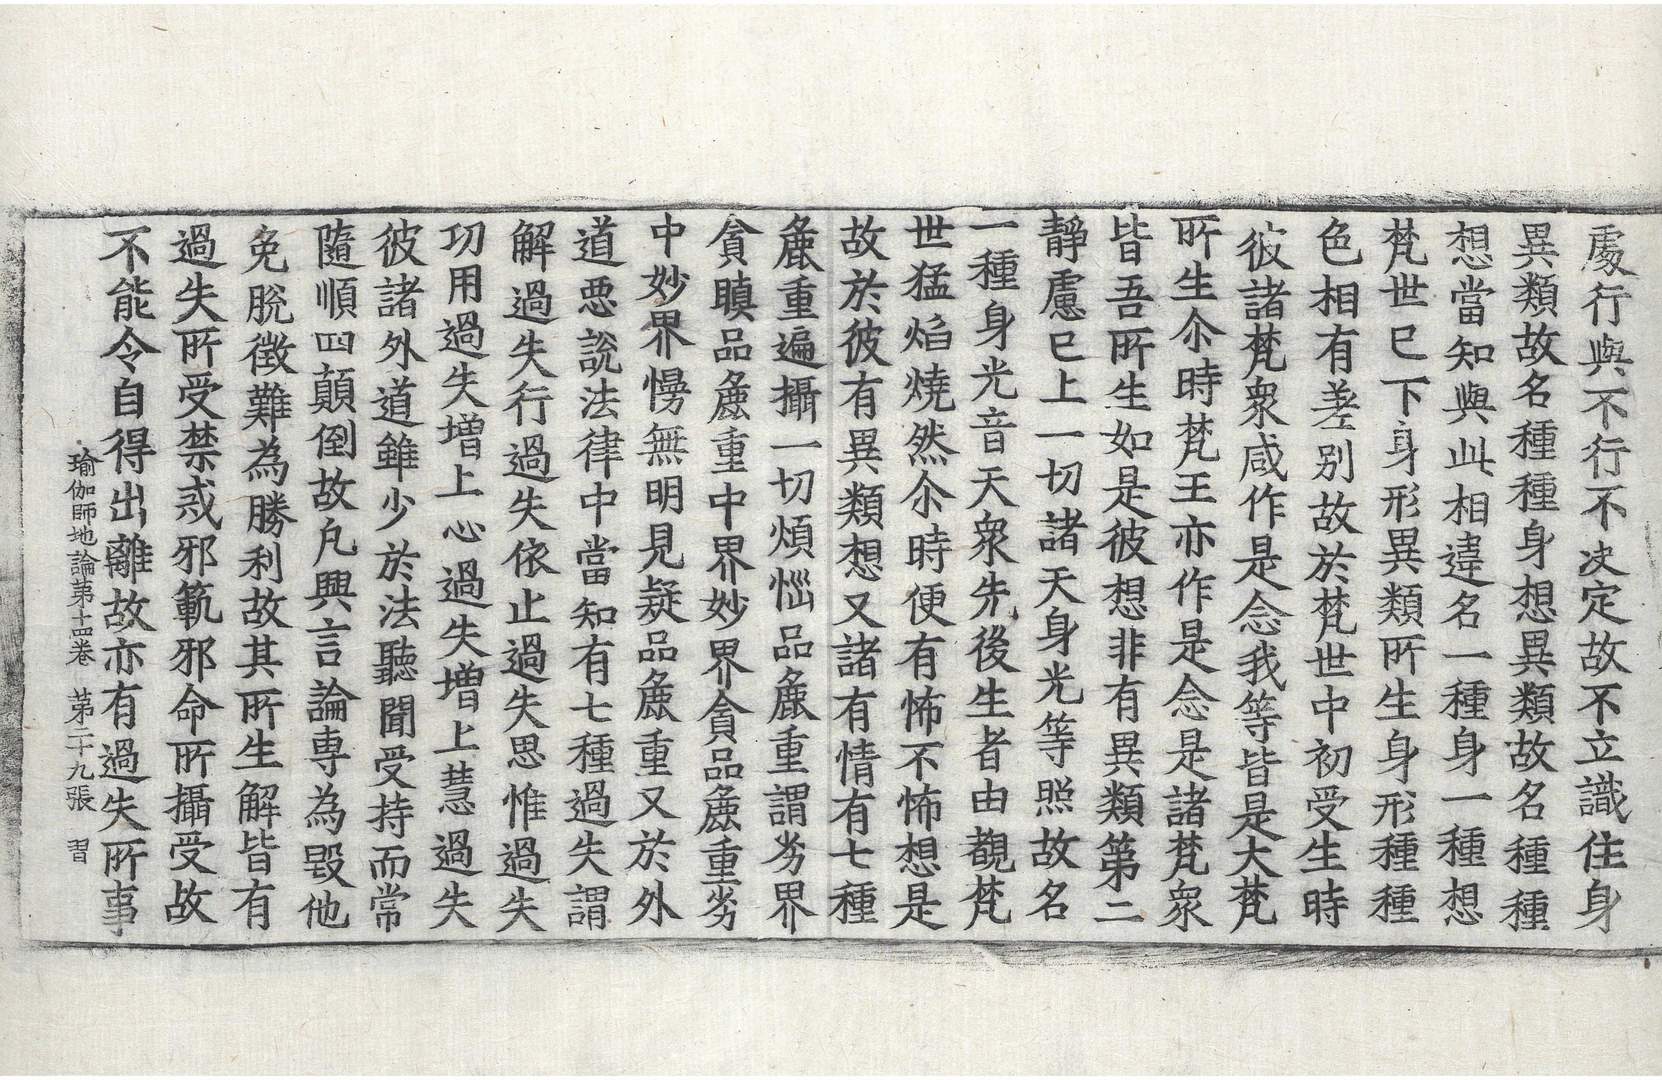 處行與不行不决定故不立識住身
異類故名種種身想異類故名種種
想當知與此相違名一種身一種想
梵世已下身形異類所生身形種種
色相有差别故於梵世中初受生時
彼諸梵衆咸作是念我等皆是大梵
所生尒時梵王亦作是念是諸梵衆
皆吾所生如是彼想非有異類第二
靜慮已上一切諸天身光等照故名
一種身光音天衆先後生者由覩梵
世猛焰燒然尒時便有怖不怖想是
故於彼有異類想又諸有情有七種
麁重遍攝一切煩惱品麁重謂劣界
貪瞋品麁重中界妙界貪品麁重劣
中妙界慢無明見疑品麁重又於外
道惡說法律中當知有七種過失謂
解過失行過失依止過失思惟過失
功用過失增上心過失增上慧過失
彼諸外道雖少於法聽聞受持而常
隨順四顚倒故凡興言論専為毀他
免脫徵難為勝利故其所生解皆有
過失所受禁戒邪範邪命所攝受故
不能令自得出離故亦有過失所事
瑜伽師地論第十四卷 第二十九張 習